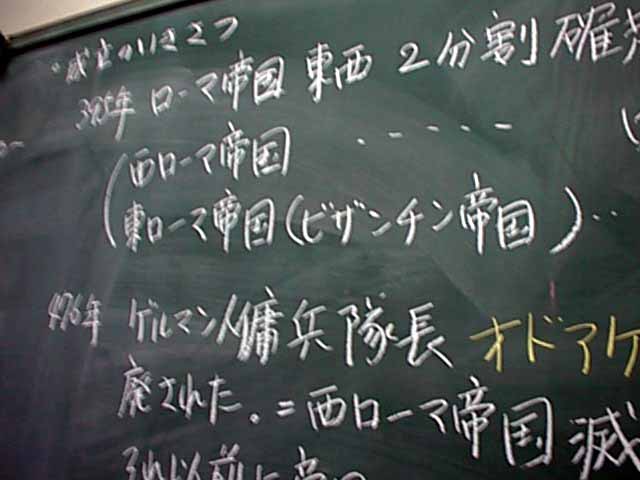 ・成立のいきさつ
395年 ローマ帝国 東西 2分割 確
西ローマ帝国 ・-----
東ローマ帝国(ビザンチン帝国)‥
476年 ゲルマン人傭兵隊長 オドアケ
廃された。=西ローマ帝国 滅
それ以前に帝